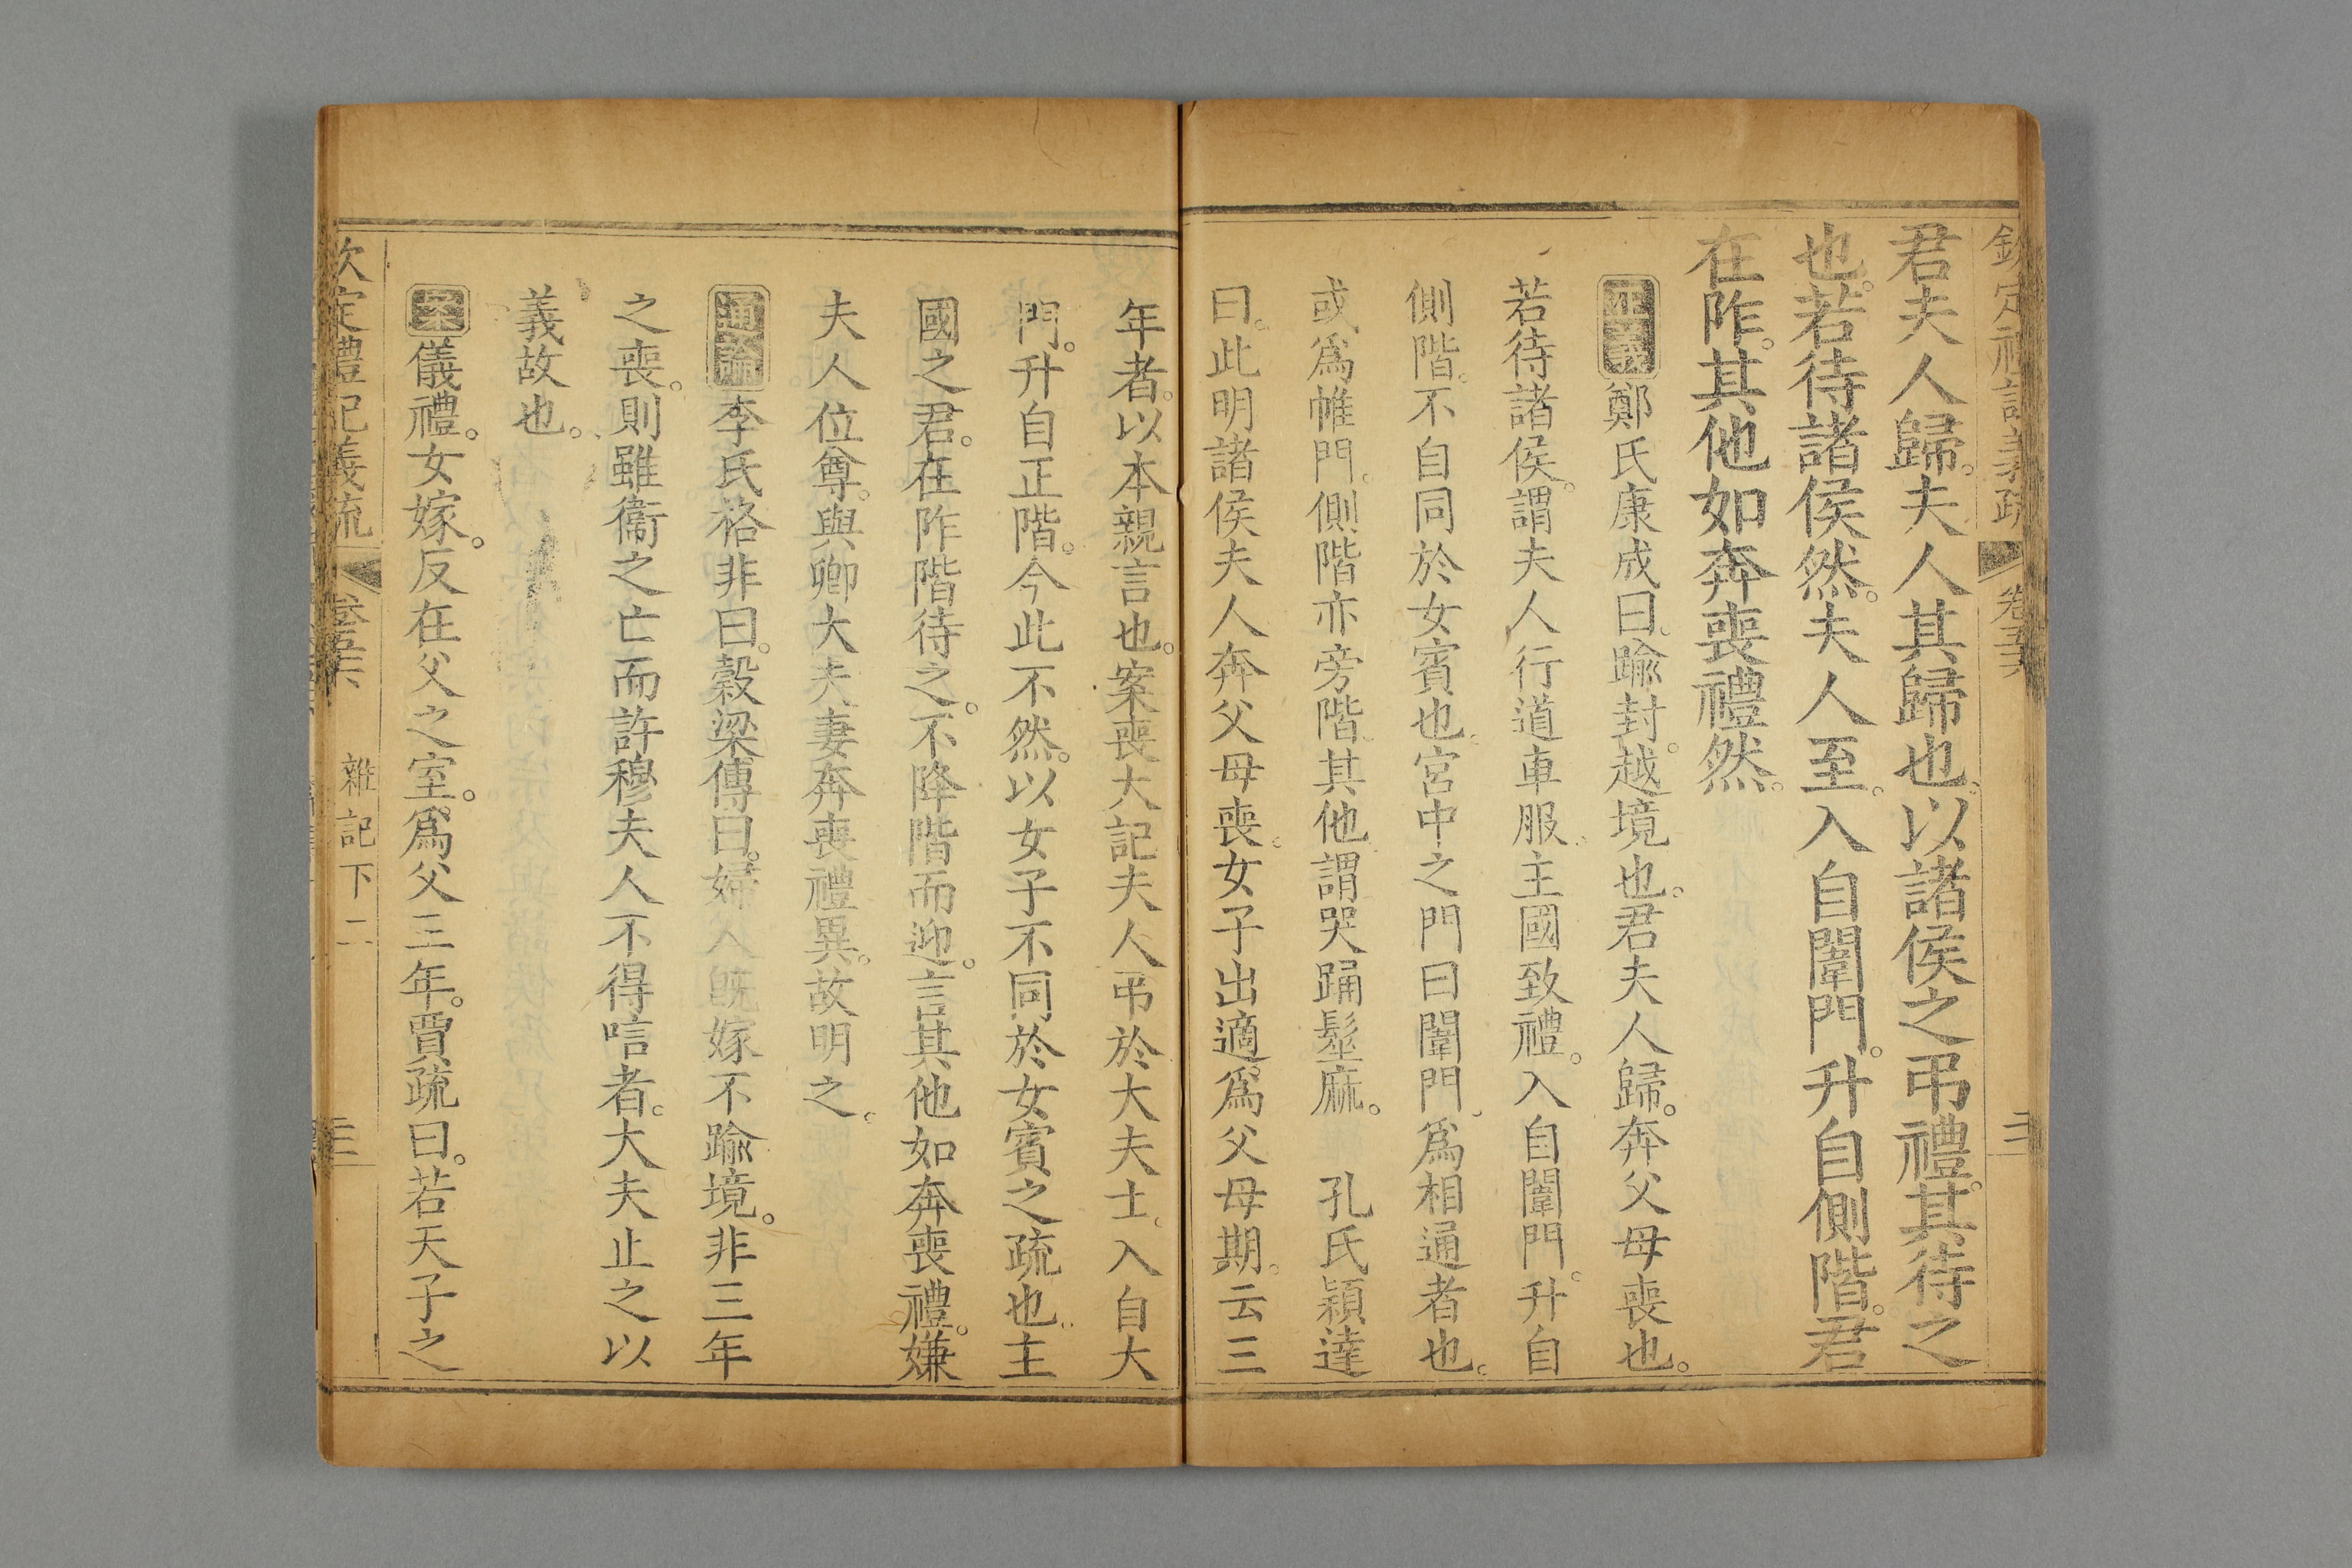 欽定禮記義疏 卷五十六
君夫人歸。夫人其歸也。以諸侯之弔禮。其待之
也。若待諸侯然。夫人至。入自闈門。升自側階。君
在阼。其他如奔喪禮然。
正義鄭氏康成曰。踰封。越境也。君夫人歸。奔父母喪也。
若待諸侯。謂夫人行道車服。主國致禮。入自闈門。升自
側階。不自同於女賓也。宮中之門曰闈門。爲相通者也。
或爲帷門。側階亦旁階。其他謂哭踊髽麻。 孔氏穎達
曰。此明諸侯夫人奔父母喪。女子出適。爲父母期。云三
年者。以本親言也。案喪大記夫人弔於大夫士。入自大
門。升自正階。今此不然。以女子不同於女賓之疏也。主
國之君。在阼階待之。不降階而迎。言其他如奔喪禮。嫌
夫人位尊。與卿大夫妻奔喪禮異。故明之。
通論李氏格非曰。穀梁傳曰。婦人既嫁不踰境。非三年
之喪。則雖衞之亡而許穆夫人不得唁者。大夫止之以
義故也。
案儀禮。女嫁。反在父之室。爲父三年。賈疏曰。若天子之
欽定禮記義疏 雜記下二